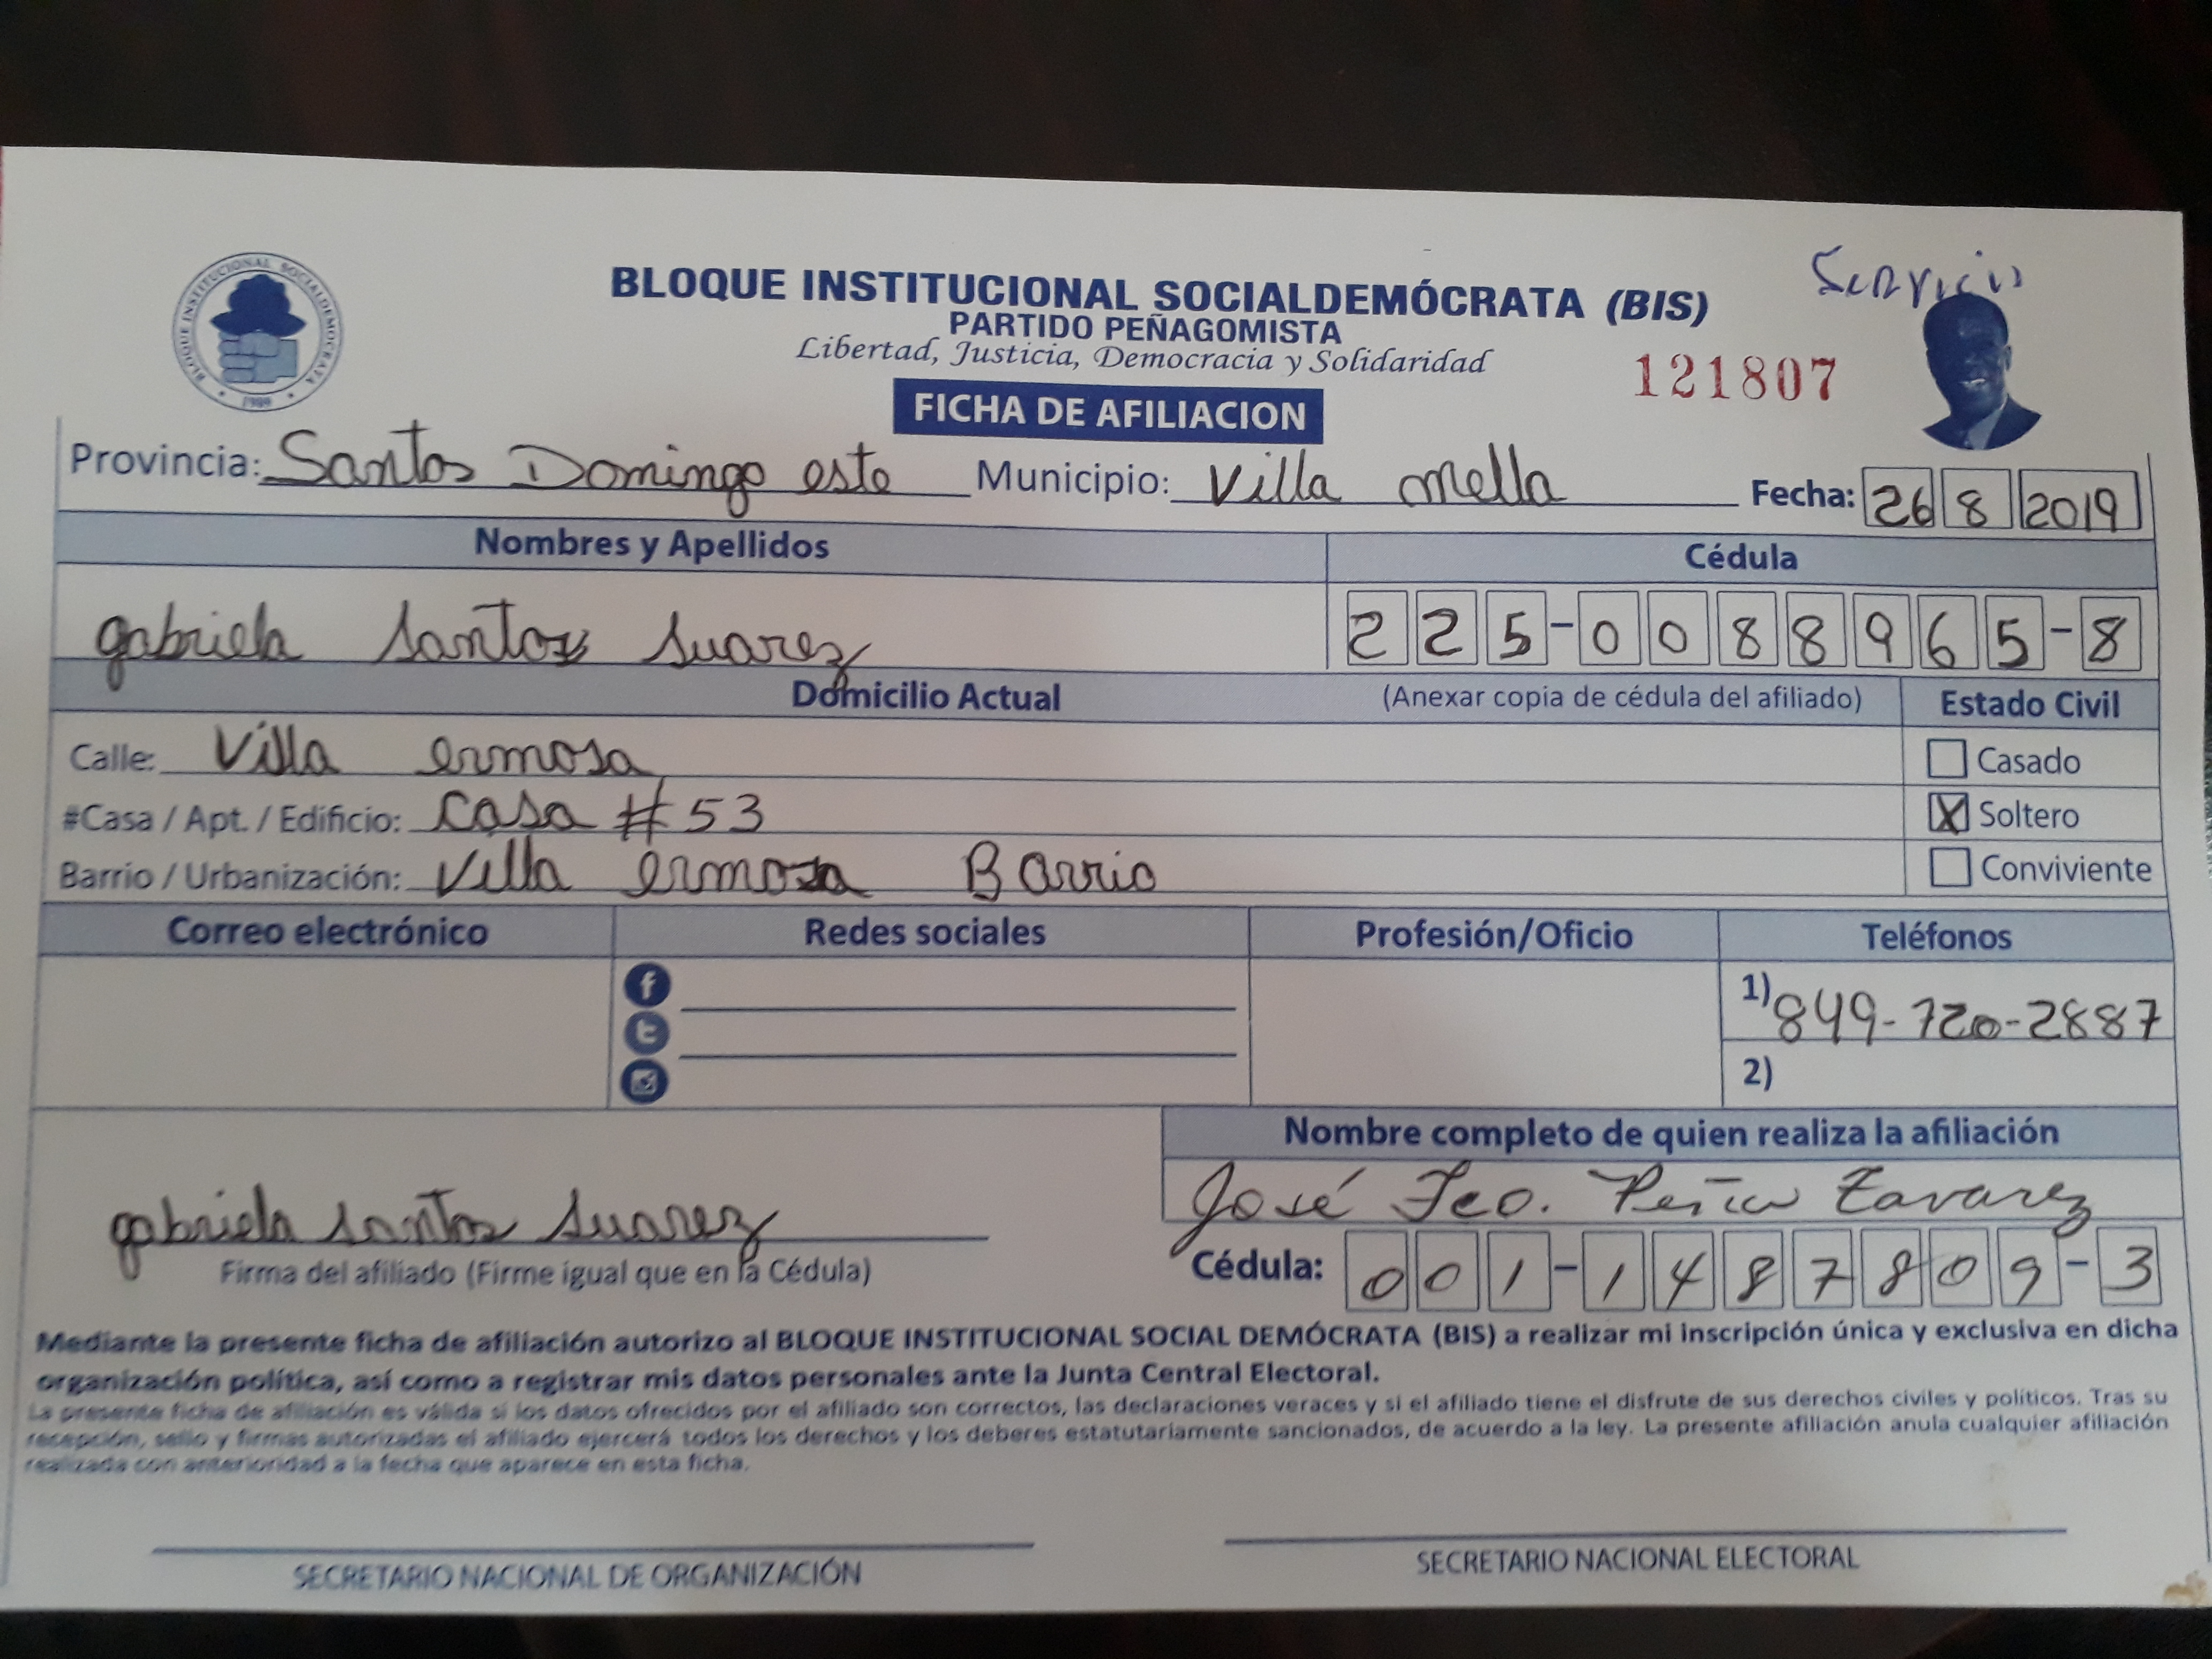 Servicio
BLOQUE INSTITUCIONAL SOCIALDEMOCRATA
1989
BLOQUE INSTITUCIONAL SOCIALDEMÓCRATA (BIS)
PARTIDO PEÑAGOMISTA
Libertad, Justicia, Democracia y Solidaridad
121807
FICHA DE AFILIACION
Provincia: Santos Domingo este Municipio: Villa mella Fecha: 26 8 2019
Nombres y Apellidos Cédula
gabriela Santos Suarez 225-0088965-8
Domicilio Actual (Anexar copia de cédula del afiliado) Estado Civil
Calle: Villa ermosa Casado
#Casa / Apt. / Edificio: Casa #53 X Soltero
Barrio / Urbanización: Villa ermosa Barrio Conviviente
Correo electrónico Redes sociales Profesión/Oficio Teléfonos
1) 849-720-2887
2)
Nombre completo de quien realiza la afiliación
José Fco. Peña Tavarez
gabriela Santos Suarez
Firma del afiliado (Firme igual que en la Cédula) Cédula: 001-1487809-3
Mediante la presente ficha de afiliación autorizo al BLOQUE INSTITUCIONAL SOCIAL DEMÓCRATA (BIS) a realizar mi inscripción única y exclusiva en dicha
organización política, así como a registrar mis datos personales ante la Junta Central Electoral.
La presente ficha de afiliación es válida si los datos ofrecidos por el afiliado son correctos, las declaraciones veraces y si el afiliado tiene el disfrute de sus derechos civiles y políticos. Tras su
recepción, sello y firmas autorizadas el afiliado ejercerá todos los derechos y los deberes estatutariamente sancionados, de acuerdo a la ley. La presente afiliación anula cualquier afiliación
realizada con anterioridad a la fecha que aparece en esta ficha.
SECRETARIO NACIONAL DE ORGANIZACIÓN SECRETARIO NACIONAL ELECTORAL